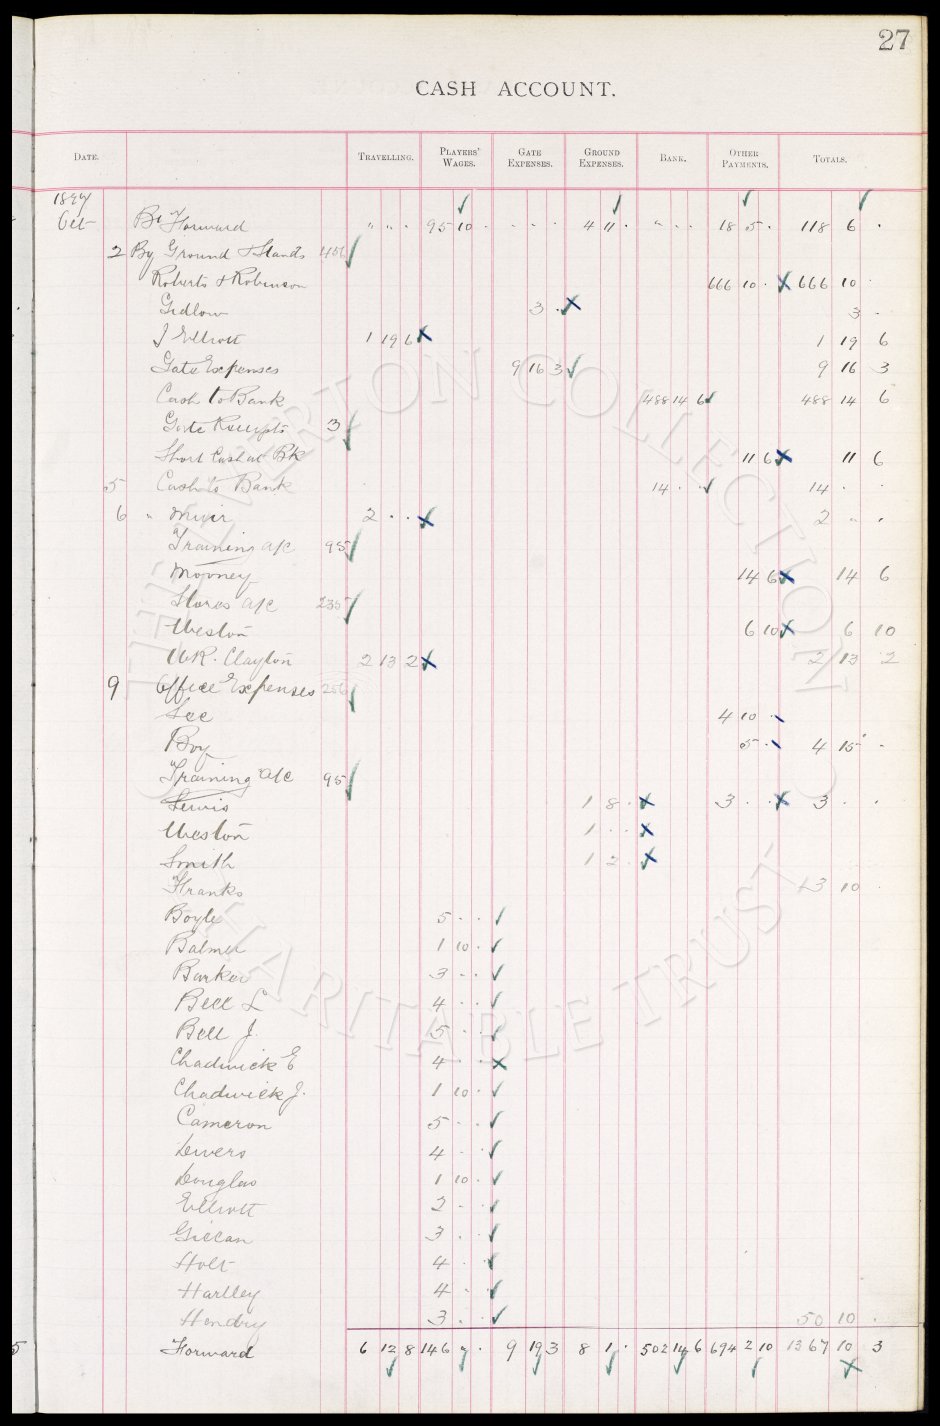 27
CASH ACCOUNT.
DATE. TRAVELLING. PLAYERS' WAGES. GATE EXPENSES. GROUND EXPENSES. BANK. OTHER PAYMENTS. TOTALS.
1897
Oct Bt Forward " " " 95 10 . . . . 4 11 . " . . 18 5 . 118 6 .
2 By Ground & Stands 456
Roberts & Robinson 666 10 . 666 10 .
Gidlow 3 . 3 .
J Elliott 1 19 6 1 19 6
Gate Expenses 9 16 3 9 16 3
Cash to Bank 488 14 6 488 14 6
Gate Receipts 3
Short Cash at Bk 11 6 11 6
5 Cash to Bank 14 . . 14 . .
6 " Muir 2 . . 2 " .
Training a/c 95
Mooney 14 6 14 6
Stores a/c 235
Weston 6 10 6 10
W.R. Clayton 2 13 2 2 13 2
9 Office Expenses 256
Lee 4 10 .
Boy 5 . 4 15 .
Training a/c 95
Lewis 1 8 . 3 . . 3 . .
Weston 1 . .
Smith 1 2 .
Franks 3 10 .
Boyle 5 . .
Balmer 1 10 .
Barker 3 . .
Bell L 4 . .
Bell J. 5 . .
Chadwick E 4 . .
Chadwick J. 1 10 .
Cameron 5 . .
Divers 4 . .
Douglas 1 10 .
Elliott 2 . .
Gillan 3 . .
Holt 4 . .
Hartley 4 . .
Hendry 3 . . 50 10 .
Forward 6 12 8 146 " . 9 19 3 8 1 . 502 14 6 694 2 10 1367 10 3
5
THE EVERTON COLLECTION
CHARITABLE TRUST